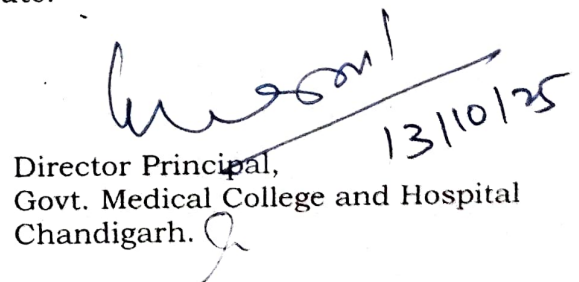 13/10/25
Director Principal,
Govt. Medical College and Hospital
Chandigarh.